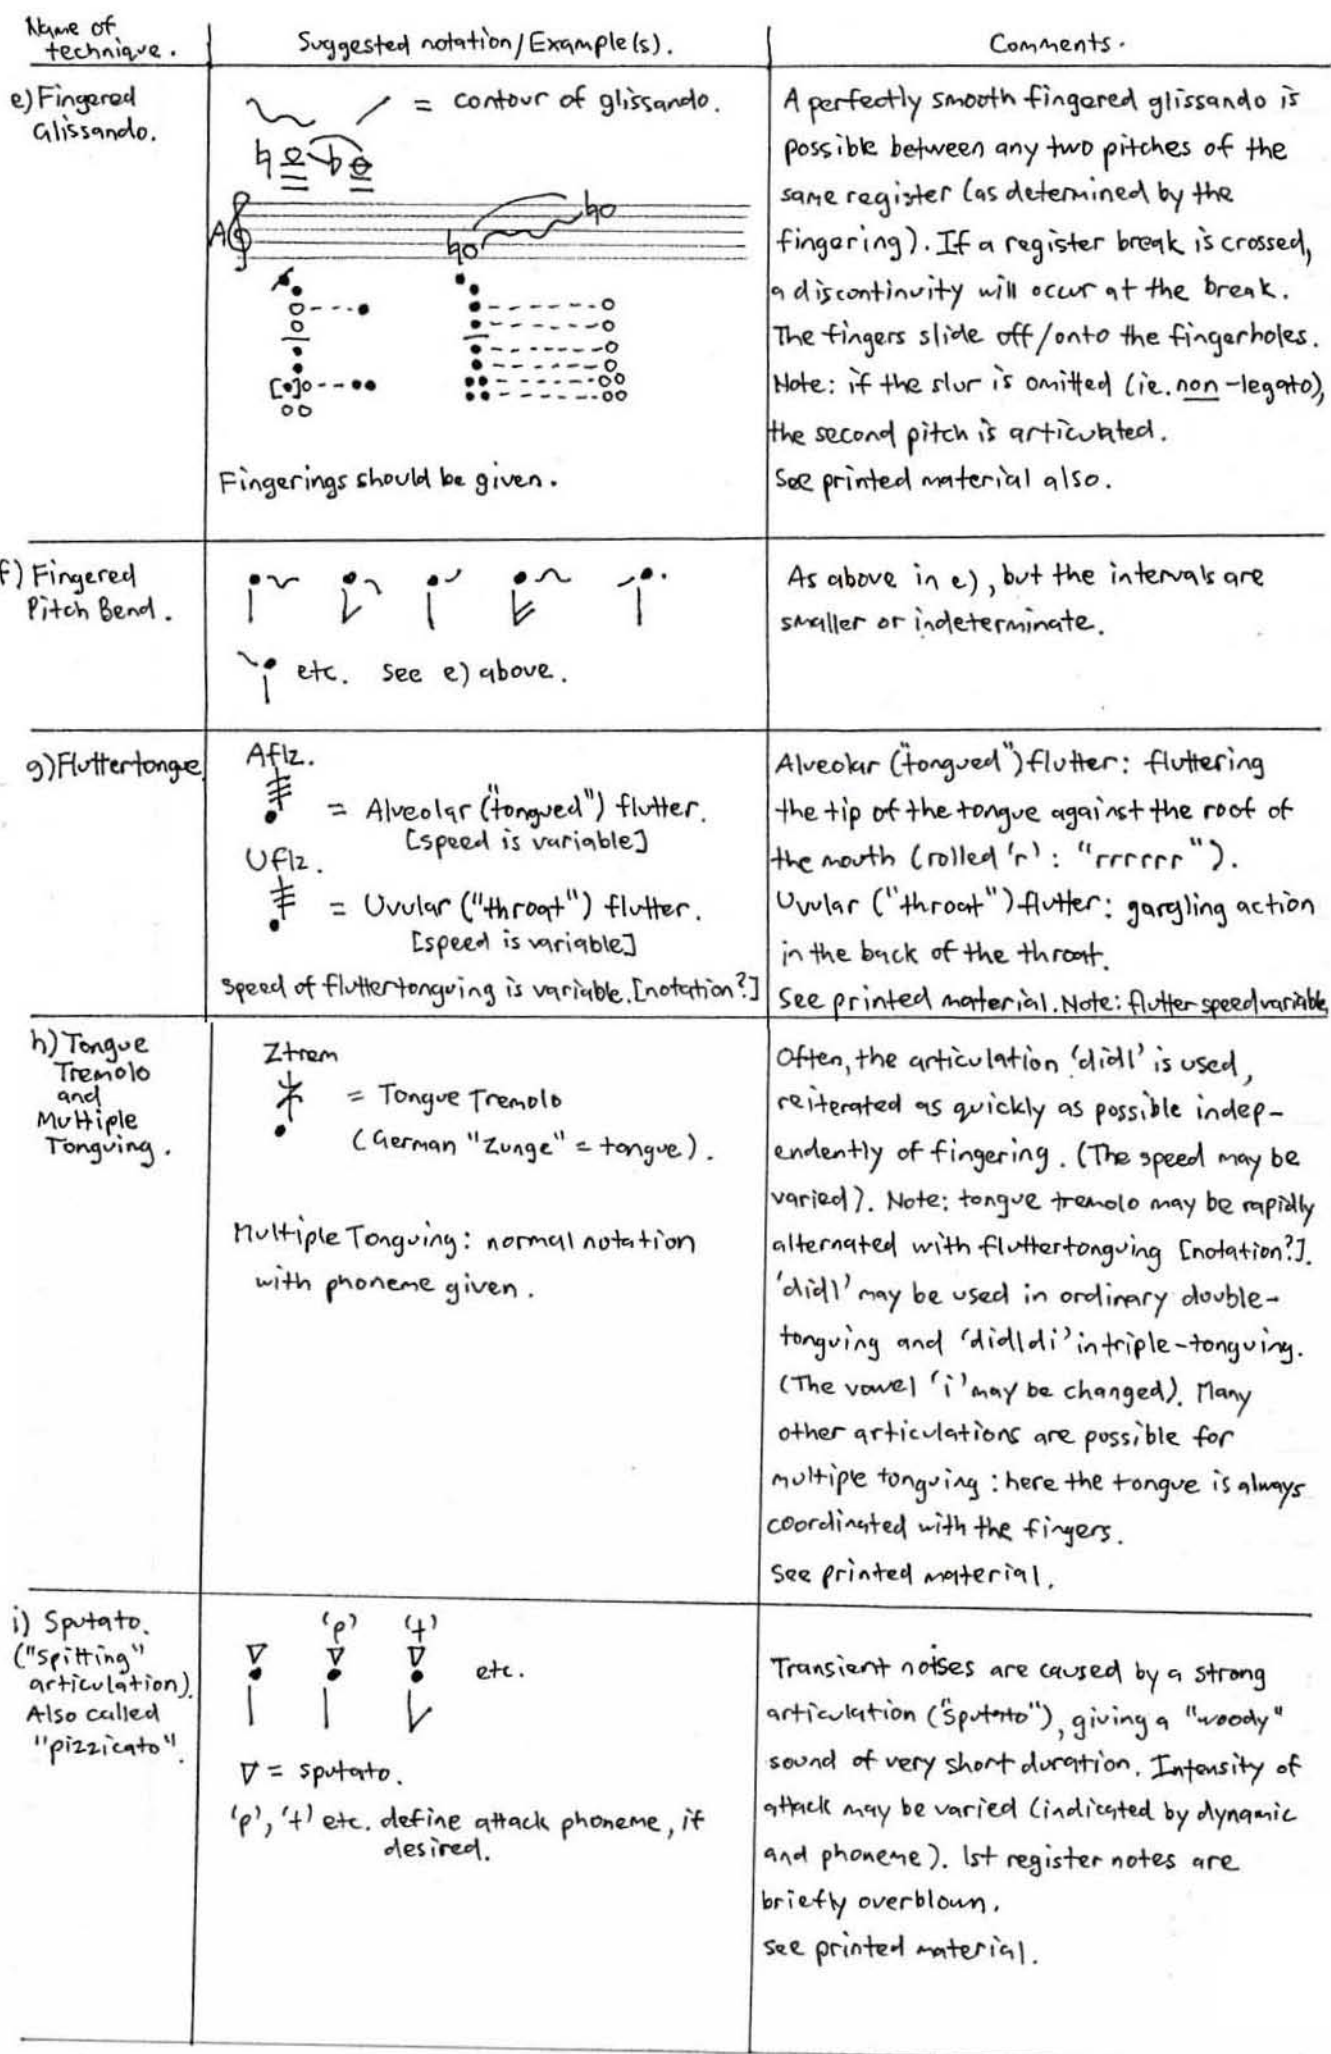 Name of technique.
Suggested notation/Example(s).
Comments.
e) Fingered
Glissando.
= contour of glissando.
A
Fingerings should be given.
A perfectly smooth fingered glissando is
possible between any two pitches of the
same register (as determined by the
fingering). If a register break is crossed,
a discontinuity will occur at the break.
The fingers slide off/onto the fingerholes.
Note: if the slur is omitted (ie. non-legato),
the second pitch is articulated.
See printed material also.
f) Fingered
Pitch Bend.
etc. see e) above.
As above in e), but the intervals are
smaller or indeterminate.
g) Fluttertongue
Aflz.
= Alveolar ("tongued") flutter.
[speed is variable]
Uflz.
= Uvular ("throat") flutter.
[speed is variable]
speed of fluttertonguing is variable. [notation?]
Alveolar ("tongued") flutter: fluttering
the tip of the tongue against the roof of
the mouth (rolled 'r': "rrrrrr").
Uvular ("throat") flutter: gargling action
in the back of the throat.
See printed material. Note: flutter speed variable
h) Tongue
Tremolo
and
Multiple
Tonguing.
Ztrem
= Tongue Tremolo
(German "Zunge" = tongue).
Multiple Tonguing: normal notation
with phoneme given.
Often, the articulation 'didl' is used,
reiterated as quickly as possible indep-
endently of fingering. (The speed may be
varied). Note: tongue tremolo may be rapidly
alternated with fluttertonguing [notation?].
'didl' may be used in ordinary double-
tonguing and 'didldi' in triple-tonguing.
(The vowel 'i' may be changed). Many
other articulations are possible for
multiple tonguing: here the tongue is always
coordinated with the fingers.
See printed material.
i) Sputato.
("spitting"
articulation).
Also called
"pizzicato".
'p' 't'
etc.
= sputato.
'p', 't' etc. define attack phoneme, if
desired.
Transient noises are caused by a strong
articulation ("sputato"), giving a "woody"
sound of very short duration. Intensity of
attack may be varied (indicated by dynamic
and phoneme). 1st register notes are
briefly overblown.
see printed material.